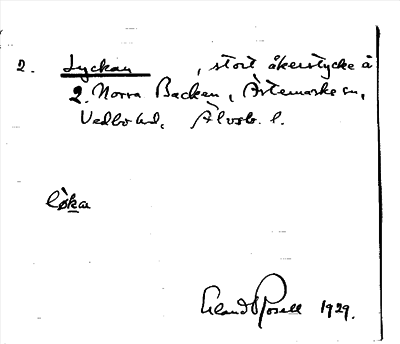 2. Lyckan, stort åkerstycke å
2. Norra Backen, Ärtemarks sn,
Vedbo hd, Älvsb. l.
løka
Erland Rosell 1929.